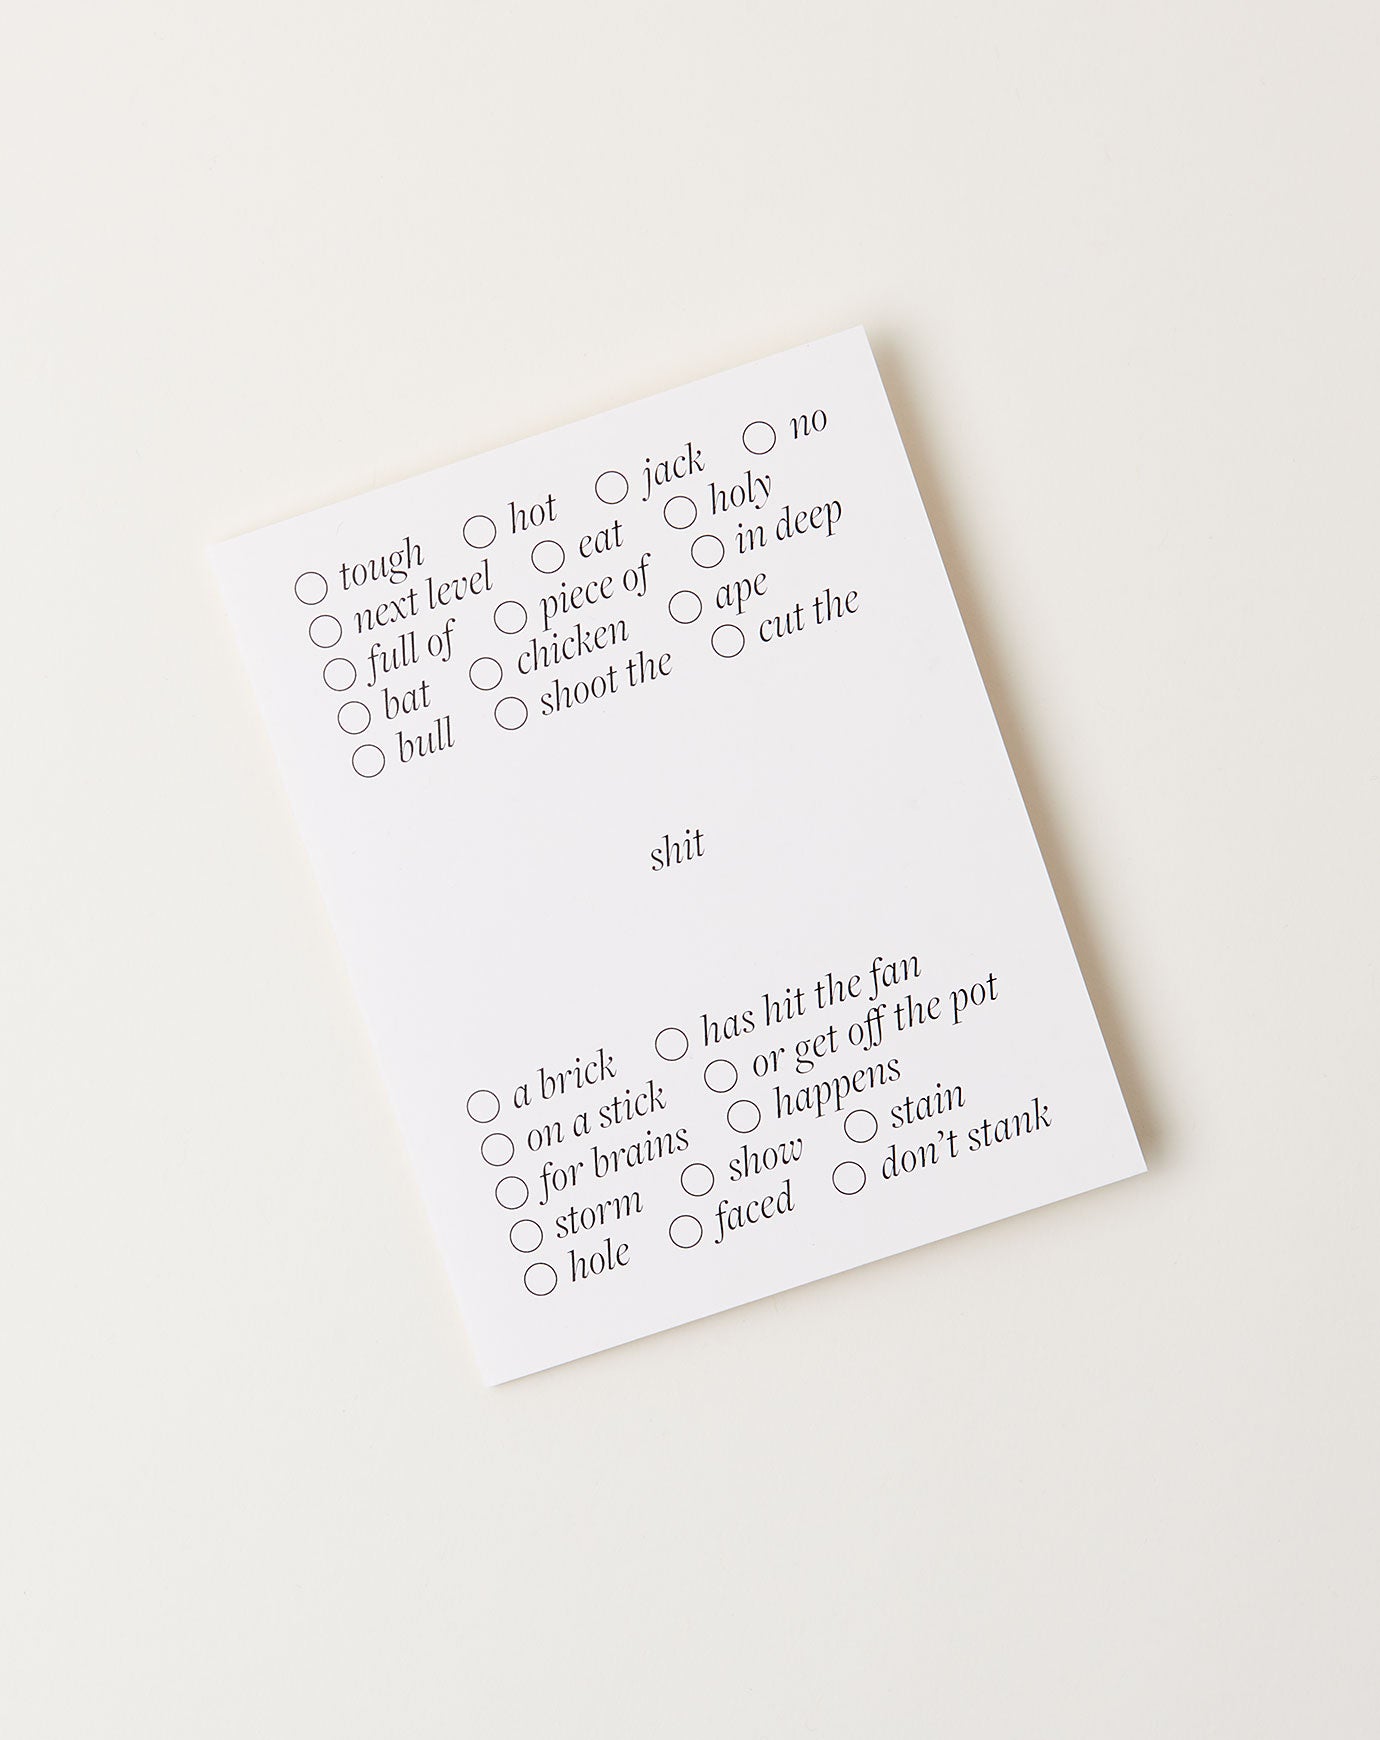 tough hot jack no
next level eat holy
full of piece of in deep
bat chicken ape
bull shoot the cut the
shit
a brick has hit the fan
on a stick or get off the pot
for brains happens
storm show stain
hole faced don't stank